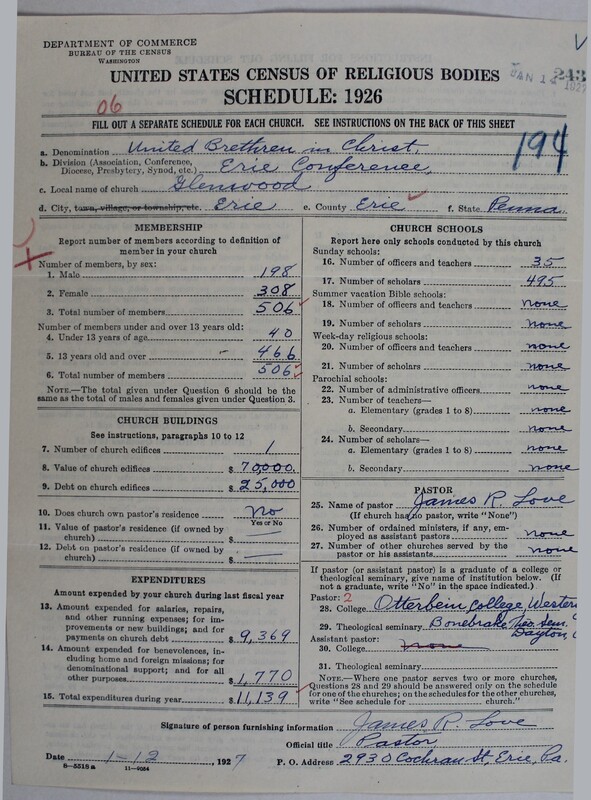 DEPARTMENT OF COMMERCE
BUREAU OF THE CENSUS
WASHINGTON
UNITED STATES CENSUS OF RELIGIOUS BODIES
JAN 14 1927
243
SCHEDULE: 1926
06
FILL OUT A SEPARATE SCHEDULE FOR EACH CHURCH. SEE INSTRUCTIONS ON THE BACK OF THIS SHEET
194
a. Denomination United Brethren in Christ
b. Division (Association, Conference, Diocese, Presbytery, Synod, etc.) Erie Conference,
c. Local name of church Glenwood
d. City, town, village, or township, etc. Erie e. County Erie f. State Penna.
MEMBERSHIP
Report number of members according to definition of
member in your church
Number of members, by sex:
1. Male 198
2. Female 308
3. Total number of members 506
Number of members under and over 13 years old:
4. Under 13 years of age 40
5. 13 years old and over 466
6. Total number of members 506
NOTE.—The total given under Question 6 should be
the same as the total of males and females given under Question 3.
CHURCH BUILDINGS
See instructions, paragraphs 10 to 12
7. Number of church edifices 1
8. Value of church edifices $ 70,000.
9. Debt on church edifices $ 25,000
10. Does church own pastor's residence? No
Yes or No
11. Value of pastor's residence (if owned by
church) $ —
12. Debt on pastor's residence (if owned by
church) $ —
EXPENDITURES
Amount expended by your church during last fiscal year
13. Amount expended for salaries, repairs,
and other running expenses; for im-
provements or new buildings; and for
payments on church debt $ 9,369
14. Amount expended for benevolences, in-
cluding home and foreign missions; for
denominational support; and for all
other purposes $ 1,770
15. Total expenditures during year $ 11,139
CHURCH SCHOOLS
Report here only schools conducted by this church
Sunday schools:
16. Number of officers and teachers 35
17. Number of scholars 495
Summer vacation Bible schools:
18. Number of officers and teachers none
19. Number of scholars none
Week-day religious schools:
20. Number of officers and teachers none
21. Number of scholars none
Parochial schools:
22. Number of administrative officers none
23. Number of teachers—
a. Elementary (grades 1 to 8) none
b. Secondary none
24. Number of scholars—
a. Elementary (grades 1 to 8) none
b. Secondary none
PASTOR
25. Name of pastor James R. Love
(If church has no pastor, write "None")
26. Number of ordained ministers, if any, em-
ployed as assistant pastors none
27. Number of other churches served by the
pastor or his assistants none
If pastor (or assistant pastor) is a graduate of a college or
theological seminary, give name of institution below. (If
not a graduate, write "No" in the space indicated.)
Pastor: 2
28. College Otterbein College, Western
29. Theological seminary Bonebrake Theo. Sem.
Dayton,
Assistant pastor:
30. College none
31. Theological seminary
NOTE.—Where one pastor serves two or more churches,
Questions 28 and 29 should be answered only on the schedule
for one of the churches; on the schedules for the other churches,
write "See schedule for church."
Signature of person furnishing information James R. Love
Official title Pastor
Date 1-12 1927 P. O. Address 2930 Cochran St, Erie, Pa.
8—5518a 11—9084